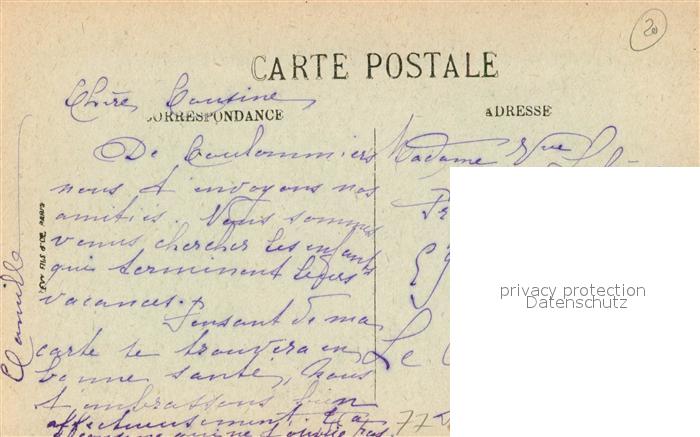 20
CARTE POSTALE
CORRESPONDANCE
ADRESSE
Chère Cousine,
De Coulommiers
nous t'envoyons nos
amitiés. Nous sommes
venus chercher les enfants
qui terminent leurs
vacances.
Pensant de ma
carte te trouvera en
bonne santé, nous
t'embrassons bien
affectueusement. Ta
cousine qui ne t'oublie pas
Camille
Madame Vve
Le
77
privacy protection
Datenschutz